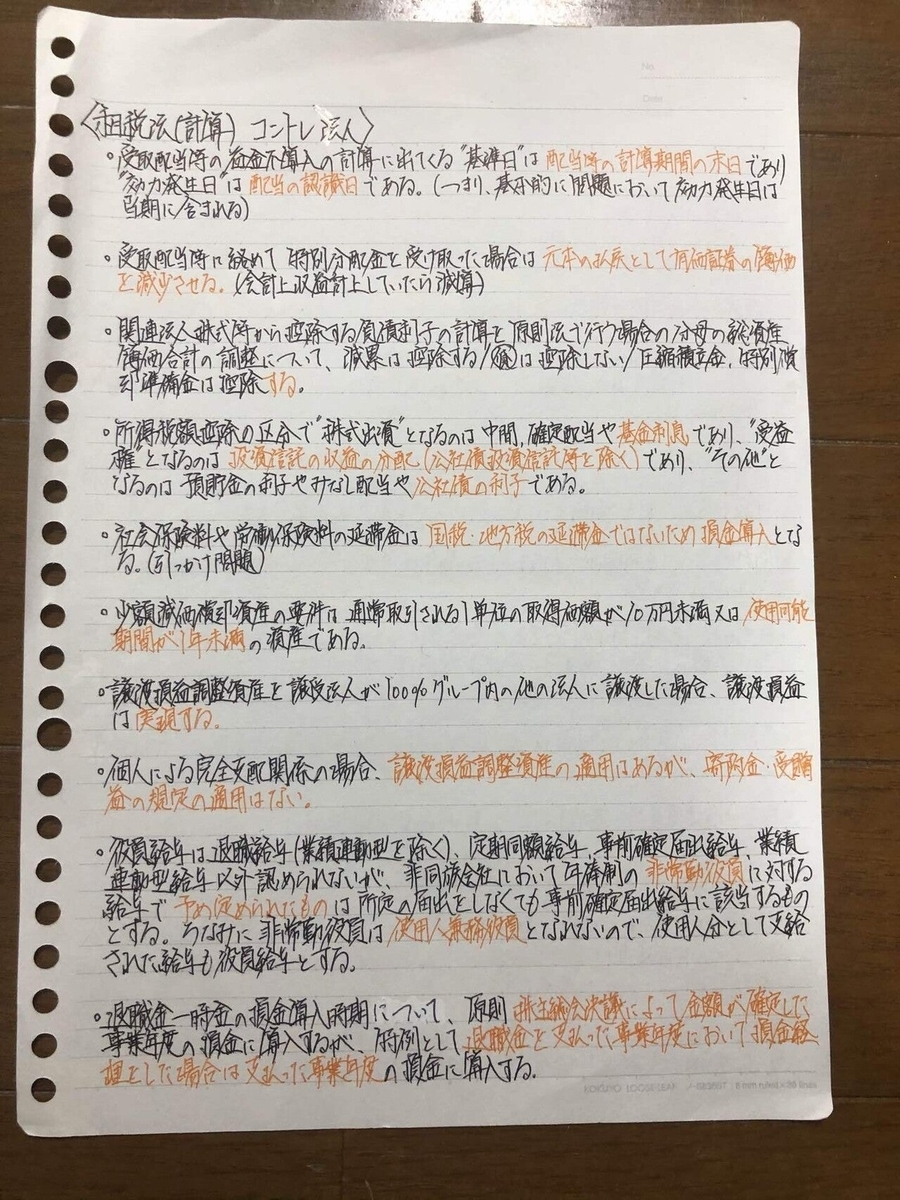 No.
Date
〈租税法(計算) コントレ 法人〉
・受取配当等の益金不算入の計算に出てくる"基準日"は配当等の計算期間の末日であり
"効力発生日"は配当の認識日である。(つまり、基本的に問題において効力発生日は
当期に含まれる)
・受取配当等に絡めて特別分配金を受け取った場合は元本の払戻として有価証券の簿価
を減少させる。(会計上収益計上していたら減算)
・関連法人株式等から控除する負債利子の計算を原則法で行う場合の分母の総資産
簿価合計の調整について、減累は控除する/は控除しない/圧縮積立金、特別償
却準備金は控除する。
・所得税額控除の区分で"株式出資"となるのは中間、確定配当や基金利息であり、"受益
権"となるのは投資信託の収益の分配(公社債投資信託等を除く)であり、"その他"と
なるのは預貯金の利子やみなし配当や公社債の利子である。
・社会保険料や労働保険料の延滞金は国税・地方税の延滞金ではないため損金算入とな
る。(引っかけ問題)
・少額減価償却資産の要件は通常取引される1単位の取得価額が10万円未満又は使用可能
期間が1年未満の資産である。
・譲渡損益調整資産を譲受法人が100%グループ内の他の法人に譲渡した場合、譲渡損益
は実現する。
・個人による完全支配関係の場合、譲渡損益調整資産の適用はあるが、寄附金・受贈
益の規定の適用はない。
・役員給与は退職給与(業績連動型を除く)、定期同額給与、事前確定届出給与、業績
連動型給与以外認められないが、非同族会社において年俸制の非常勤役員に対する
給与で予め定められたものは所定の届出をしなくても事前確定届出給与に該当するもの
とする。ちなみに非常勤役員は使用人兼務役員となれないので、使用人分として支給
された給与も役員給与とする。
・退職金一時金の損金算入時期について、原則株主総会決議によって金額が確定した
事業年度の損金に算入するが、特例として退職金を支払った事業年度において損金経
理をした場合は支払った事業年度の損金に算入する。
KOKUYO LOOSE-LEAF 6 mm ruled